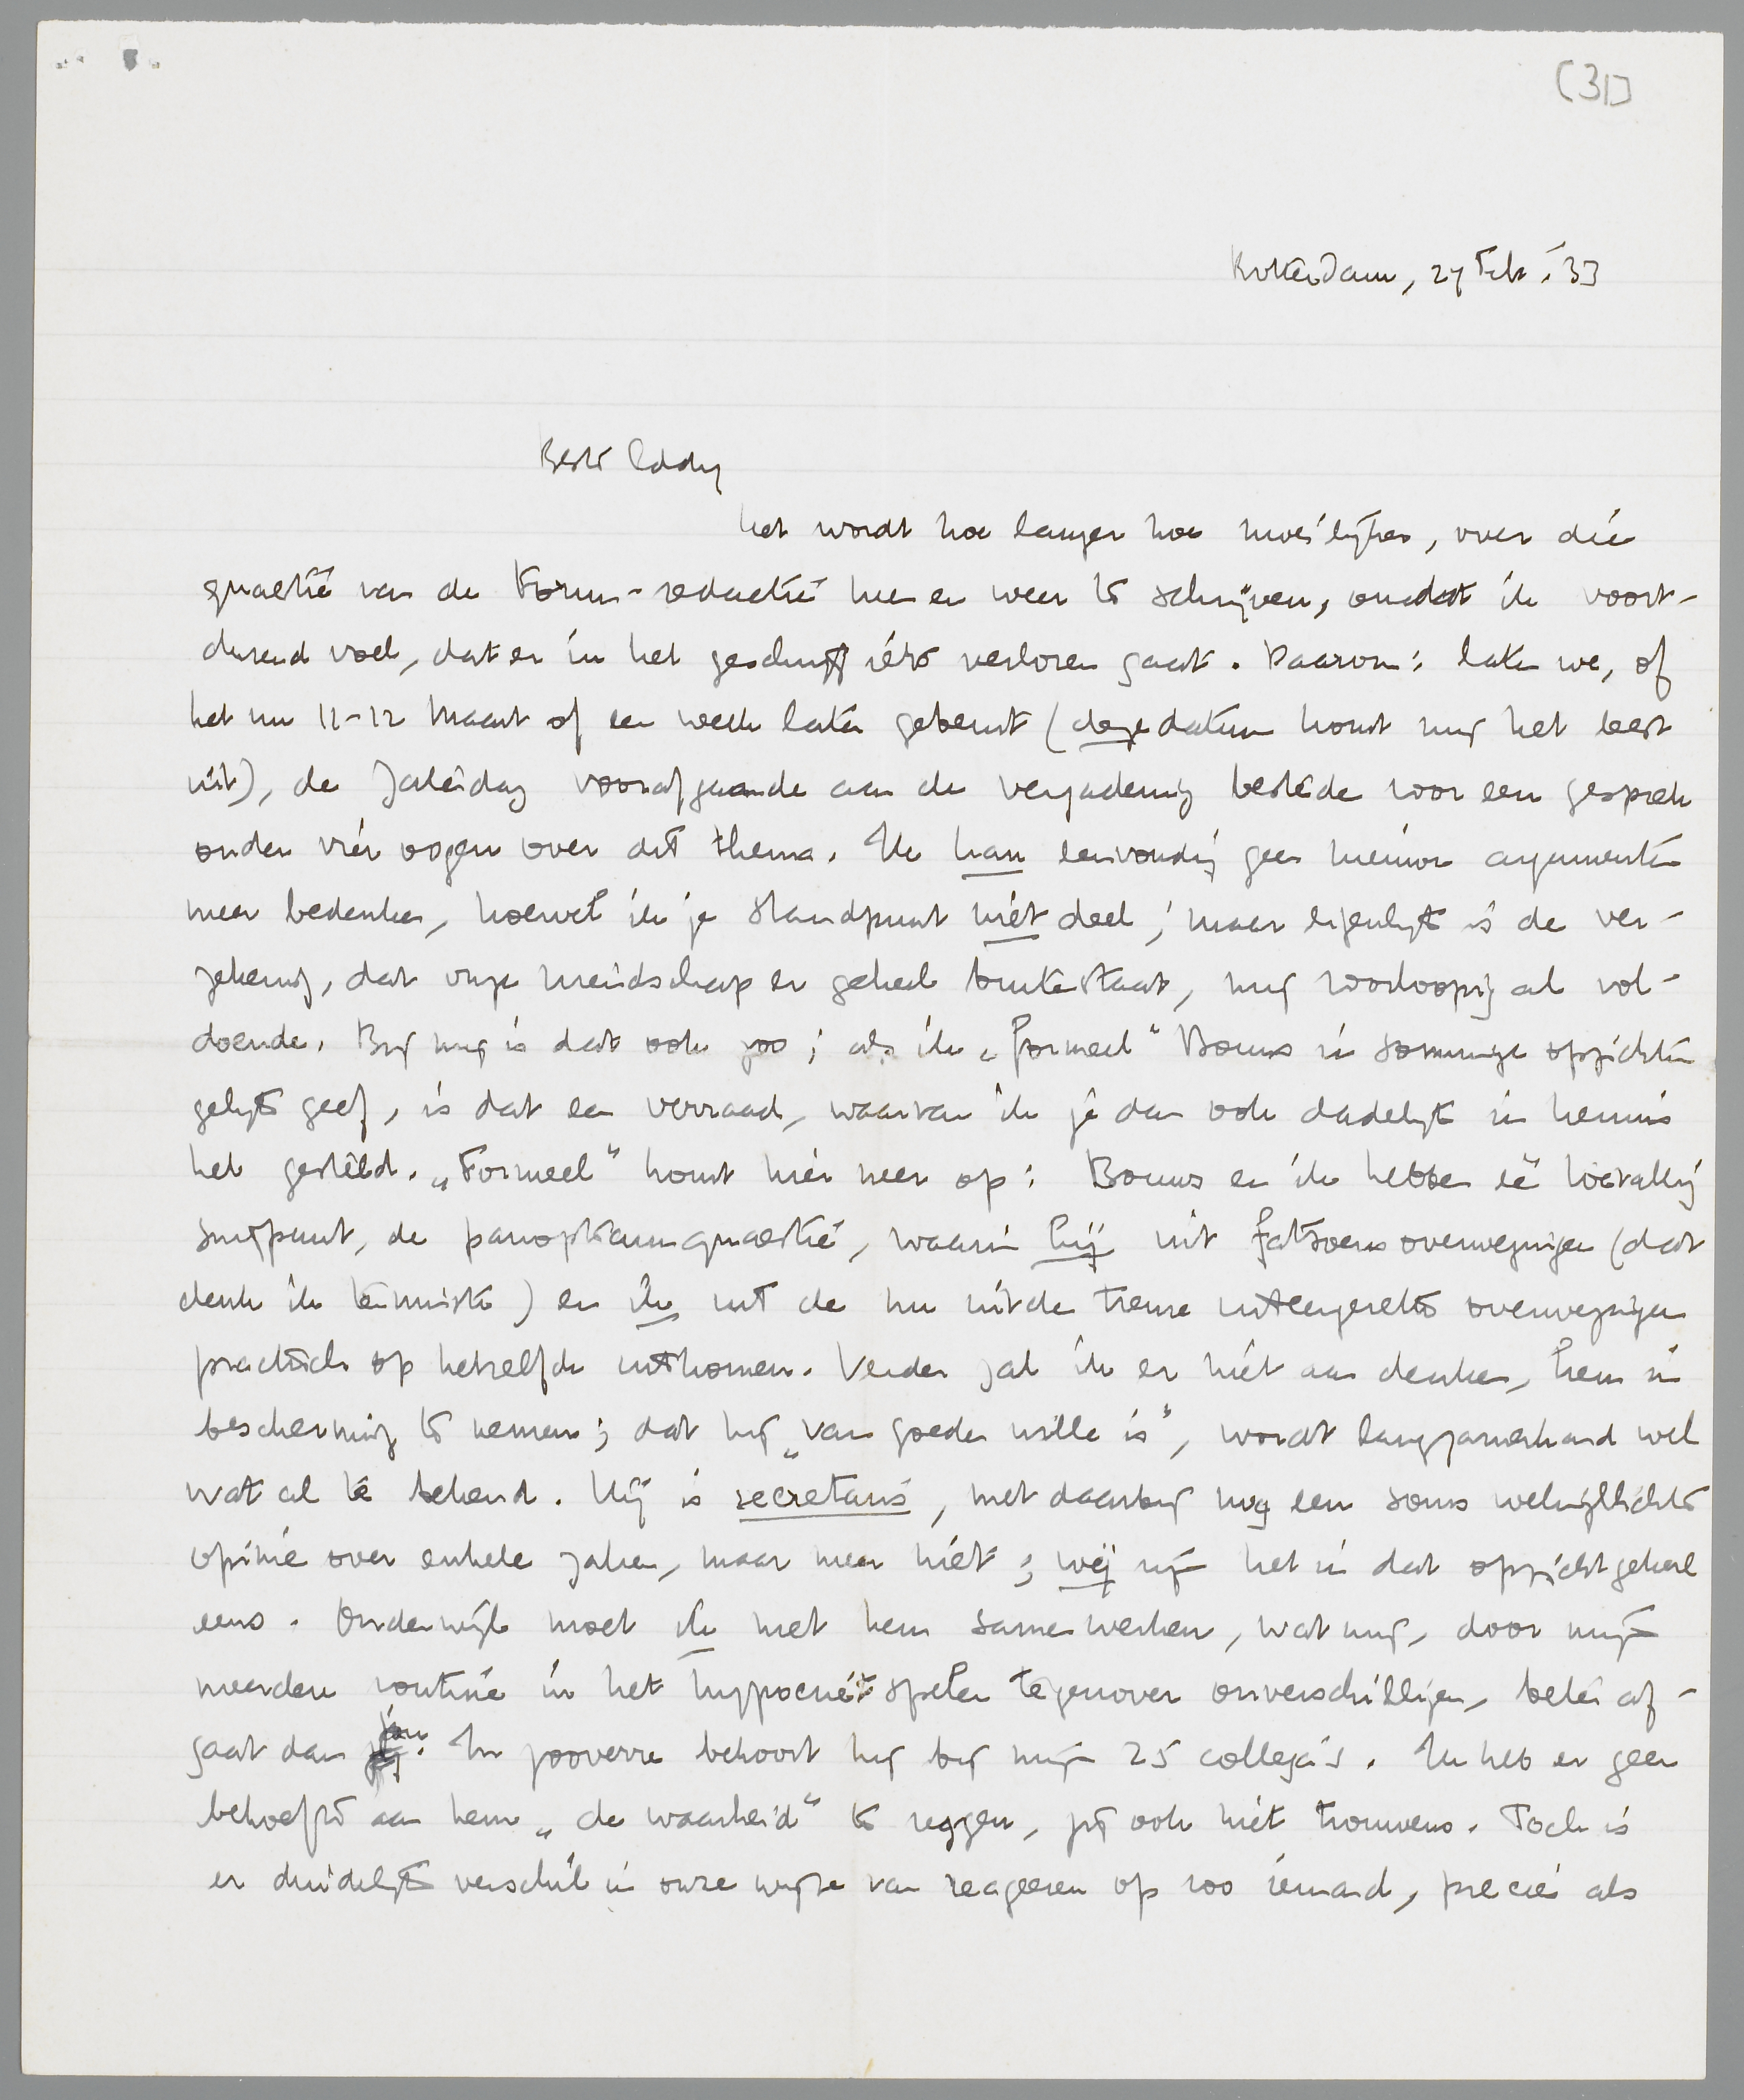 [31]
Rotterdam, 27 Febr. '33
Beste Eddy
het wordt hoe langer hoe moeilijker, over die
quaestie van de Forum-redactie heen en weer te schrijven, omdat ik voort-
durend voel, dat er in het geschrijf iets verloren gaat. Daarom: laten we, of
het nu 11-12 Maart of een week later gebeurt (deze datum komt mij het best
uit), de Zaterdag voorafgaande aan de vergadering besteden voor een gesprek
onder vier oogen over dit thema. Ik kan eenvoudig geen nieuwe argumenten
meer bedenken, hoewel ik je standpunt niet deel; maar eigenlijk is de ver-
zekering, dat onze vriendschap er geheel buiten staat, mij voorloopig al vol-
doende. Bij mij is dat ook zoo; als ik „formeel" Bouws in sommige opzichten
gelijk geef, is dat een verraad, waarvan ik je dan ook dadelijk in kennis
heb gesteld. „Formeel" komt hier neer op: Bouws en ik hebben één toevallig
snijpunt, de panopticumquaestie, waarin hij uit fatsoensoverwegingen (dat
denk ik tenminste) en ik uit de nu uit den treure uiteengezette overwegingen
practisch op hetzelfde uitkomen. Verder zal ik er niet aan denken, hem in
bescherming te nemen; dat hij „van goeden wille is", wordt langzamerhand wel
wat al te bekend. Hij is secretaris, met daarbij nog een soms welverlichte
opinie over enkele zaken, maar meer niet; wij zijn het in dat opzicht geheel
eens. Onderwijl moet ik met hem samenwerken, wat mij, door mijn
meerdere routine in het hypocriet spelen tegenover onverschilligen, beter af-
gaat dan jou. In zooverre behoort hij bij mijn 25 collega's. Ik heb er geen
behoefte aan hem „de waarheid" te zeggen, jij ook niet trouwens. Toch is
er duidelijk verschil in onze wijze van reageeren op zoo iemand, precies als